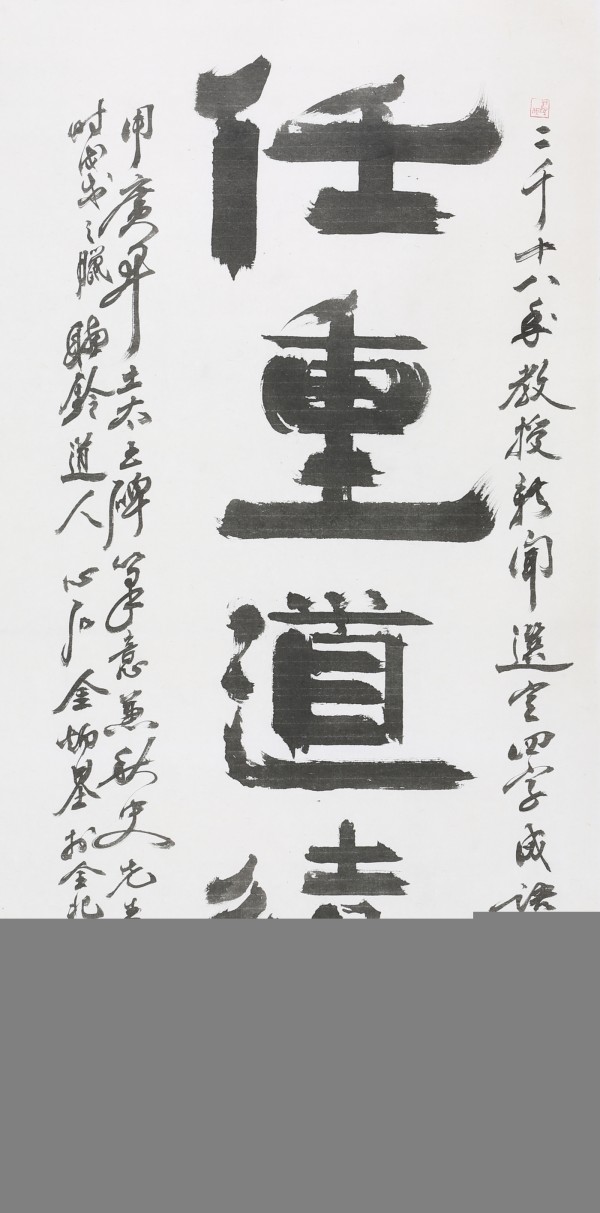 二千十八年教授新聞選定四字成語
任重道
用廣開土太王碑筆意兼秋史先生
時戊戌之臘 聽鈴道人 心石 金炳基 於全北